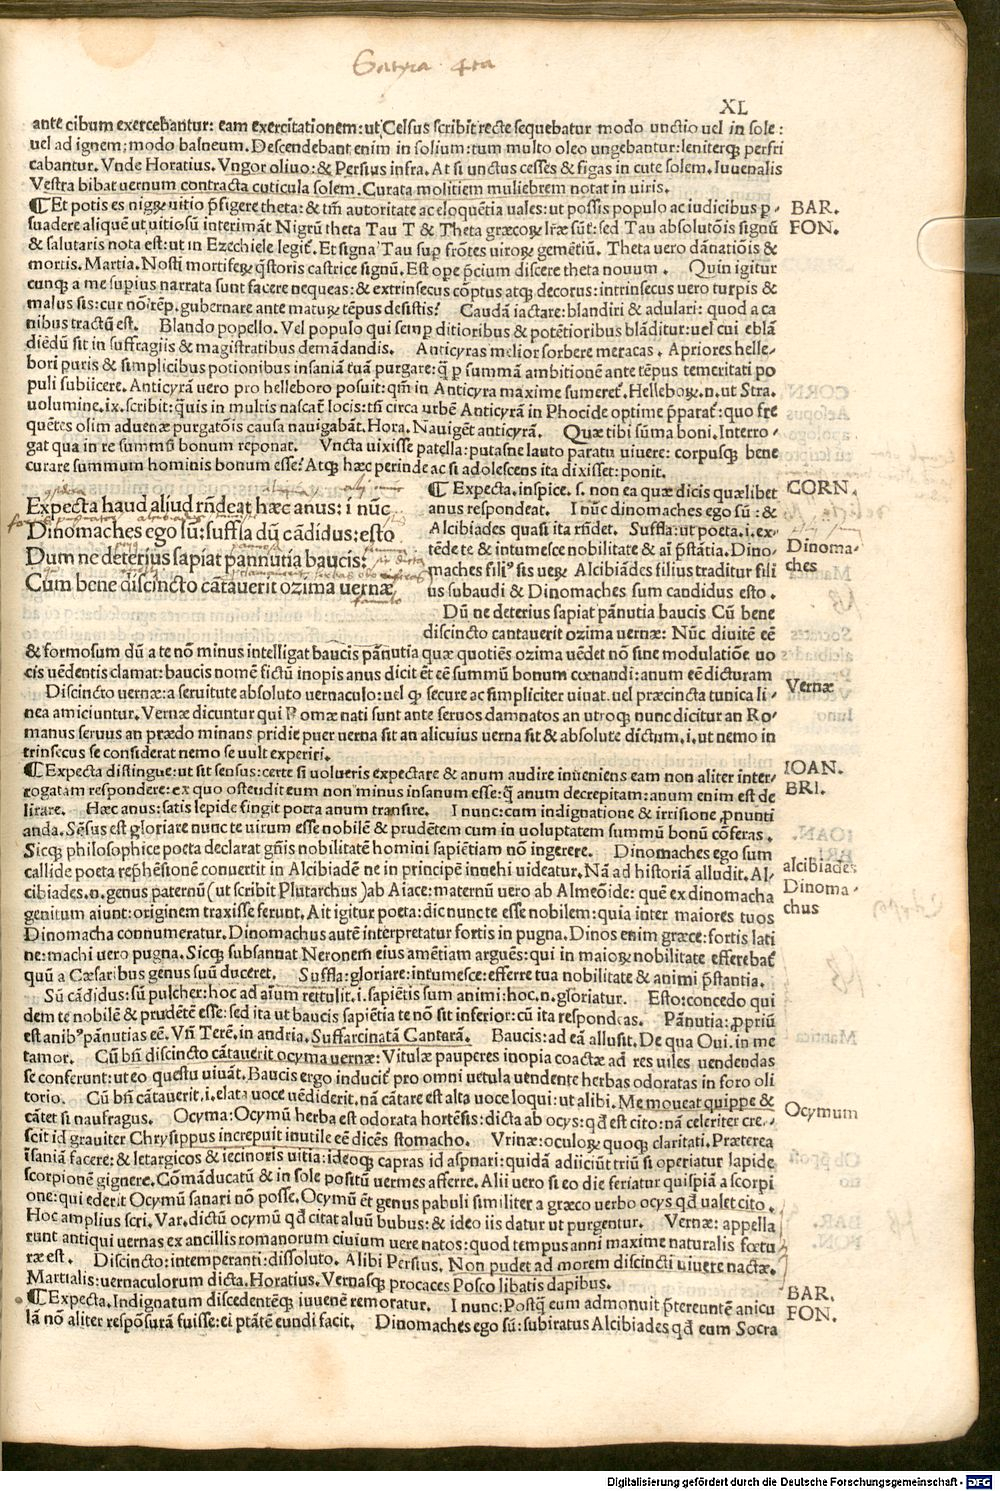 Satyra 4ta
XL
ante cibum exercebantur: eam exercitationem: ut Celsus scribit recte sequebatur modo unctio uel in sole:
uel ad ignem: modo balneum. Descendebant enim in solium: tum multo oleo ungebantur: leniterqꝫ perfri
cabantur. Vnde Horatius. Vngor oliuo: & Persius infra. At si unctus cesses & figas in cute solem. Iuuenalis
Vestra bibat uernum contracta cuticula solem. Curata molitiem muliebrem notat in uiris.
¶Et potis es nigꝝ uitio p̃figere theta: & tm̃ autoritate ac eloquẽtia uales: ut possis populo ac iudicibus ꝑ-
BAR.
suadere aliquẽ ut uitiosũ interimãt Nigrũ theta Tau T & Theta græcoꝝ lr̃æ sũt: sed Tau absolutõis signũ
FON.
& salutaris nota est: ut in Ezechiele legit᷑. Et signa Tau suꝑ frõtes uiroꝝ gemẽtiũ. Theta uero dãnatiõis &
mortis. Martia. Nosti mortifeꝝ q̃storis castrice signũ. Est ope p̃cium discere theta nouum. Quin igitur
cunqꝫ a me suꝑius narrata sunt facere nequeas: & extrinsecus cõptus atqꝫ decorus: intrinsecus uero turpis &
malus sis: cur nõ rẽp. gubernare ante matuꝝ tẽpus desistis? Caudã iactare: blandiri & adulari: quod a ca
nibus tractũ est. Blando popello. Vel populo qui semꝑ ditioribus & potẽtioribus blãditur: uel cui eblã
diẽdũ sit in suffragiis & magistratibus demãdandis. Anticyras melior sorbere meracas. Apriores helle-
bori puris & simplicibus potionibus insaniã tuã purgare: q̃ ꝑ summã ambitionẽ ante tẽpus temeritati po
puli subiicere. Anticyrã uero pro helleboro posuit: qm̃ in Anticyra maxime sumeret᷑. Helleboꝝ. n. ut Stra.
uolumine. ix. scribit: q̃uis in multis nascat᷑ locis: tñ circa urbẽ Anticyrã in Phocide optime p̃parat᷑: quo fre
quẽtes olim aduenæ purgatõis causa nauigabãt. Hora. Nauiget anticyrã. Quæ tibi sũma boni. Interro-
gat qua in re summũ bonum reponat. Vncta uixisse patella: putasne lauto paratu uiuere: corpusqꝫ bene
curare summum hominis bonum esse? Atqꝫ hæc perinde ac si adolescens ita dixisset: ponit.
Expecta haud aliud rñdeat hæc anus: i nũc
Dinomaches ego sũ: suffla dũ cãdidus: esto
Dum ne deterius sapiat pannutia baucis:
Cum bene discincto cãtauerit ozima uernæ
¶ Expecta. inspice. s. non ea quæ dicis quælibet
CORN.
anus respondeat. I nũc dinomaches ego sũ: &
Alcibiades quasi ita rñdet. Suffla: ut poeta. i. ex-
tẽde te & intumesce nobilitate & ai p̃stãtia. Dino-
Dinoma-
maches filiꝰ sis ueꝝ Alcibiãdes filius traditur fili
ches
us subaudi & Dinomaches sum candidus esto.
Dũ ne deterius sapiat pãnutia baucis Cũ bene
discincto cantauerit ozima uernæ: Nũc diuitẽ eẽ
& formosum dũ a te nõ minus intelligat baucis pãnutia quæ quotiẽs ozima uẽdet nõ sine modulatiõe uo
cis uẽdentis clamat: baucis nomẽ fictũ inopis anus dicit ẽt eẽ summũ bonum cœnandi: anum eẽ dicturam
Discincto uernæ: a seruitute absoluto uernaculo: uel qꝫ secure ac simpliciter uiuat. uel præcincta tunica li-
Vernæ
nea amiciuntur. Vernæ dicuntur qui Romæ nati sunt ante seruos damnatos an utroqꝫ nunc dicitur an Ro-
manus seruus an prædo minans pridie puer uerna sit an alicuius uerna sit & absolute dictum. i. ut nemo in
trinsecus se considerat nemo se uult experiri.
¶Expecta distingue: ut sit sensus: certe si uolueris expectare & anum audire inueniens eam non aliter inter-
IOAN.
rogatam respondere: ex quo ostendit eum non minus insanum esse: q̃ anum decrepitam: anum enim est de
BRI.
lirare. Hæc anus: satis lepide fingit poeta anum transire. I nunc: cum indignatione & irrisione ꝓnunti
anda. Sẽsus est gloriare nunc te uirum esse nobilẽ & prudẽtem cum in uoluptatem summũ bonũ cõferas.
Sicqꝫ philosophice poeta declarat gñis nobilitatẽ homini sapiẽtiam nõ ingerere. Dinomaches ego sum
callide poeta rep̃hẽsionẽ conuertit in Alcibiadẽ ne in principẽ inuehi uideatur. Nã ad historiã alludit. Al-
alcibiades
cibiades. n. genus paternũ (ut scribit Plutarchus) ab Aiace: maternũ uero ab Almeõide: quẽ ex dinomacha
Dinoma-
genitum aiunt: originem traxisse ferunt. Ait igitur poeta: dic nunc te esse nobilem: quia inter maiores tuos
chus
Dinomacha connumeratur. Dinomachus autẽ interpretatur fortis in pugna. Dinos enim græce: fortis lati
ne: machi uero pugna. Sicqꝫ subsannat Neronem eius amẽtiam arguẽs: qui in maioꝝ nobilitate efferebat᷑
quũ a Cæsaribus genus suũ duceret. Suffla: gloriare: intumesce: efferre tua nobilitate & animi p̃stantia.
Sũ cãdidus: sũ pulcher: hoc ad aĩum rettulit. i. sapiẽtis sum animi: hoc. n. gloriatur. Esto: concedo qui
dem te nobilẽ & prudẽtẽ esse: sed ita ut baucis sapiẽtia te nõ sit inferior: cũ ita respondeas. Pãnutia: ꝓpriũ
est anibꝰ pãnutias eẽ. Vñ Terẽ. in andria. Suffarcinatã Cantarã. Baucis: ad eã allusit. De qua Oui. in me
tamor. Cũ bñ discincto cãtauerit ocyma uernæ: Vitulæ pauperes inopia coactæ ad res uiles uendendas
se conferunt: ut eo questu uiuãt. Baucis ergo inducit᷑ pro omni uetula uendente herbas odoratas in foro oli
torio. Cũ bñ cãtauerit. i. elata uoce uẽdiderit. nã cãtare est alta uoce loqui: ut alibi. Me moueat quippe &
cãtet si naufragus. Ocyma: Ocymũ herba est odorata hortẽsis: dicta ab ocys: qđ est cito: nã celeriter cre-
Ocymum
scit id grauiter Chrysippus increpuit inutile eẽ dicẽs stomacho. Vrinæ: oculoꝝ quoqꝫ claritati. Præterea
ĩsaniã facere: & letargicos & iecinoris uitia: ideoqꝫ capras id aspnari: quidã adiiciũt triũ si operiatur lapide
scorpionẽ gignere. Cõmãducatũ & in sole positũ uermes afferre. Alii uero si eo die feriatur quispiã a scorpi
one: qui ederit Ocymũ sanari nõ posse. Ocymũ ẽt genus pabuli similiter a græco uerbo ocys qđ ualet cito.
Hoc amplius scri. Var. dictũ ocymũ qđ citat aluũ bubus: & ideo iis datur ut purgentur. Vernæ: appella
runt antiqui uernas ex ancillis romanorum ciuium uere natos: quod tempus anni maxime naturalis fœtu
ræ est. Discincto: intemperanti: dissoluto. Alibi Persius. Non pudet ad morem discincti uiuere nactæ.
Martialis: uernaculorum dicta. Horatius. Vernasqꝫ procaces Posco libatis dapibus.
¶Expecta. Indignatum discedentẽqꝫ iuuenẽ remoratur. I nunc: Postq̃ eum admonuit p̃tereuntẽ anicu
BAR.
lã nõ aliter respõsurã fuisse: ei ptãtẽ eundi facit. Dinomaches ego sũ: subiratus Alcibiades qđ eum Socra
FON.
Digitalisierung gefördert durch die Deutsche Forschungsgemeinschaft - DFG